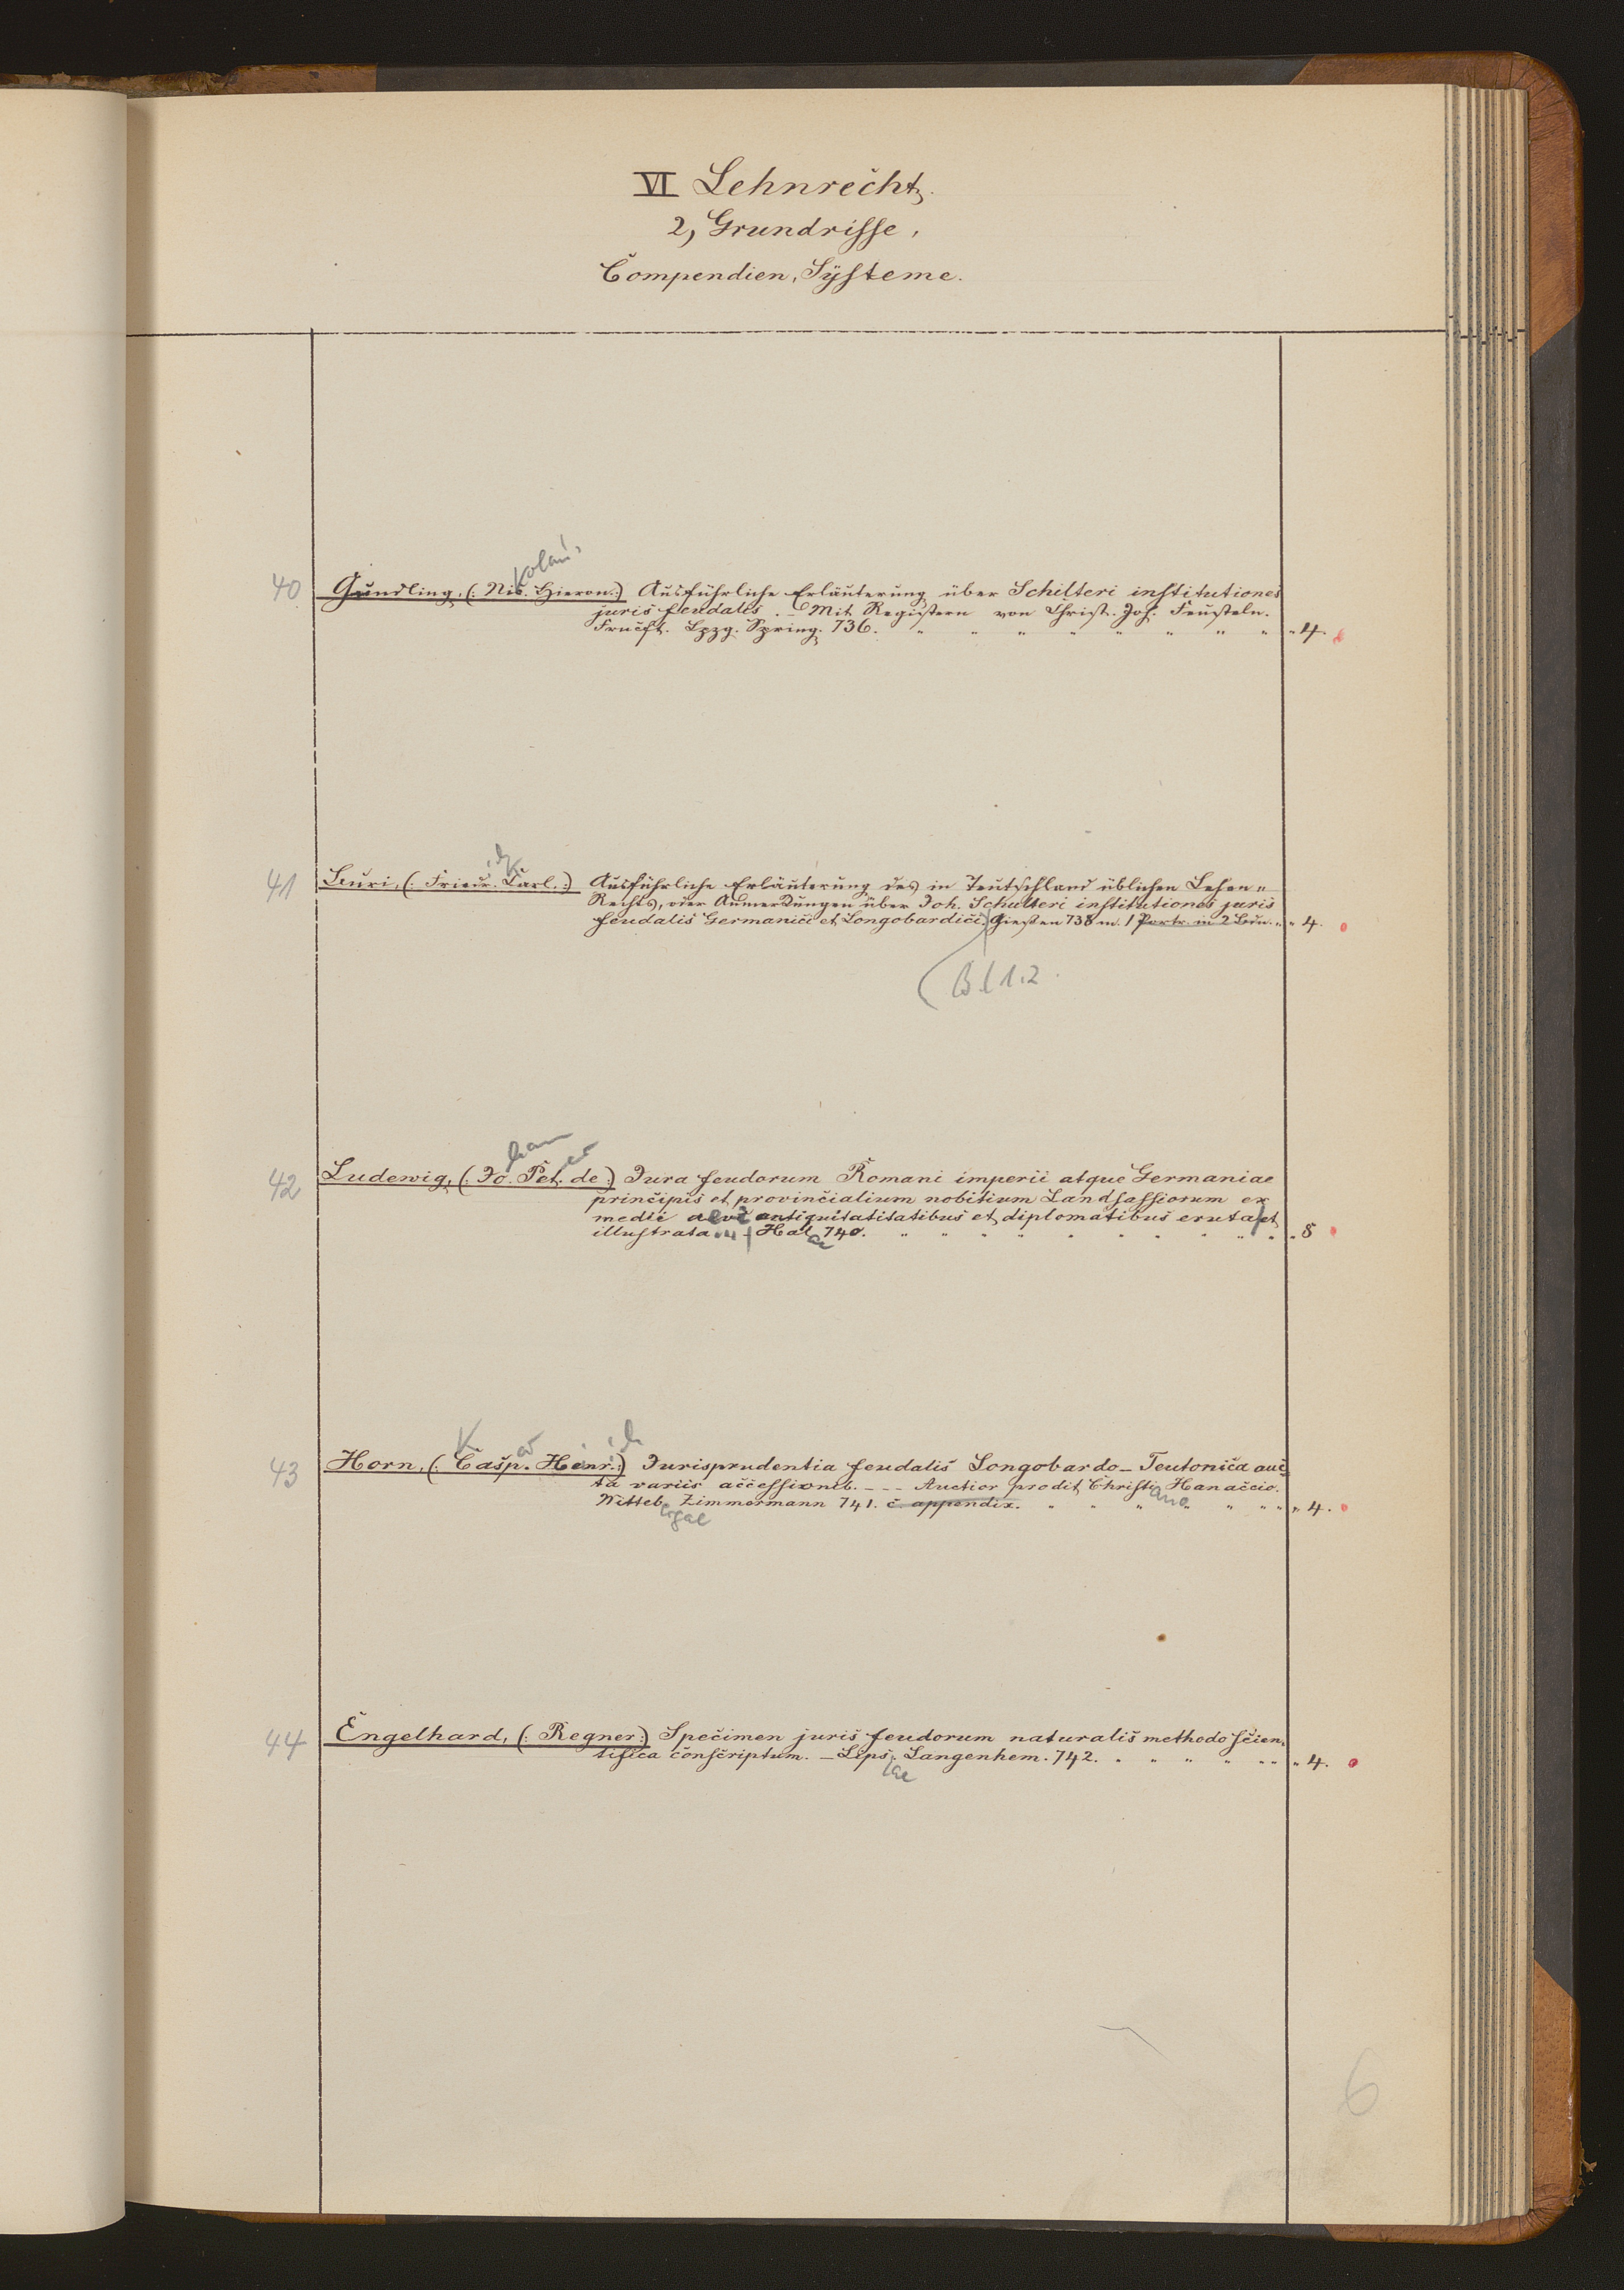 VI Lehnrecht.
2, Grundrisse,
Compendien, Systeme.
kolau
40 Gundling, (: Nic. Hieron.:) Ausführliche Erläuterung über Schilteri institutiones
juris feudalis. – Mit Registern von Christ. Joh. Feusteln.
Frncft. Lpzg. Spring. 736. " " " " " " " " " 4.
41 Buri, (: Friedr. Carl.:) Ausführliche Erläuterung des in Teutschland üblichen Lehen-
Rechts, oder Anmerkungen über Joh. Schilteri institutiones juris
feudalis Germanici et Longobardici. Giessen 738 m. 1 Portr. in 2 Bdn. " " 4.
Bd 1.2.
han er
42 Ludewig, (: Jo. Pet. de:) Jura feudorum Romani imperii atque Germaniae
principis et provincialium nobilium Landsassiorum ex
medii aevi antiquitatitatibus et diplomatibus eruta et
illustrata. – Hal. 740. " " " " " " " " " " 8
ae
K ar i ch
43 Horn, (: Casp. Henr.:) Jurisprudentia feudalis Longobardo-Teutonica auc-
ta variis accessionib. - - - Auctior prodit, Christ. Hanaccio.
ano
Witteb. Zimmermann 741. c. appendix. " " " " " " " " 4.
ergae
44 Engelhard, (: Regner:) Specimen juris feudorum naturalis methodo scien-
tifica conscriptum. – Lips. Langenhem. 742. " " " " " " " 4.
iae
6